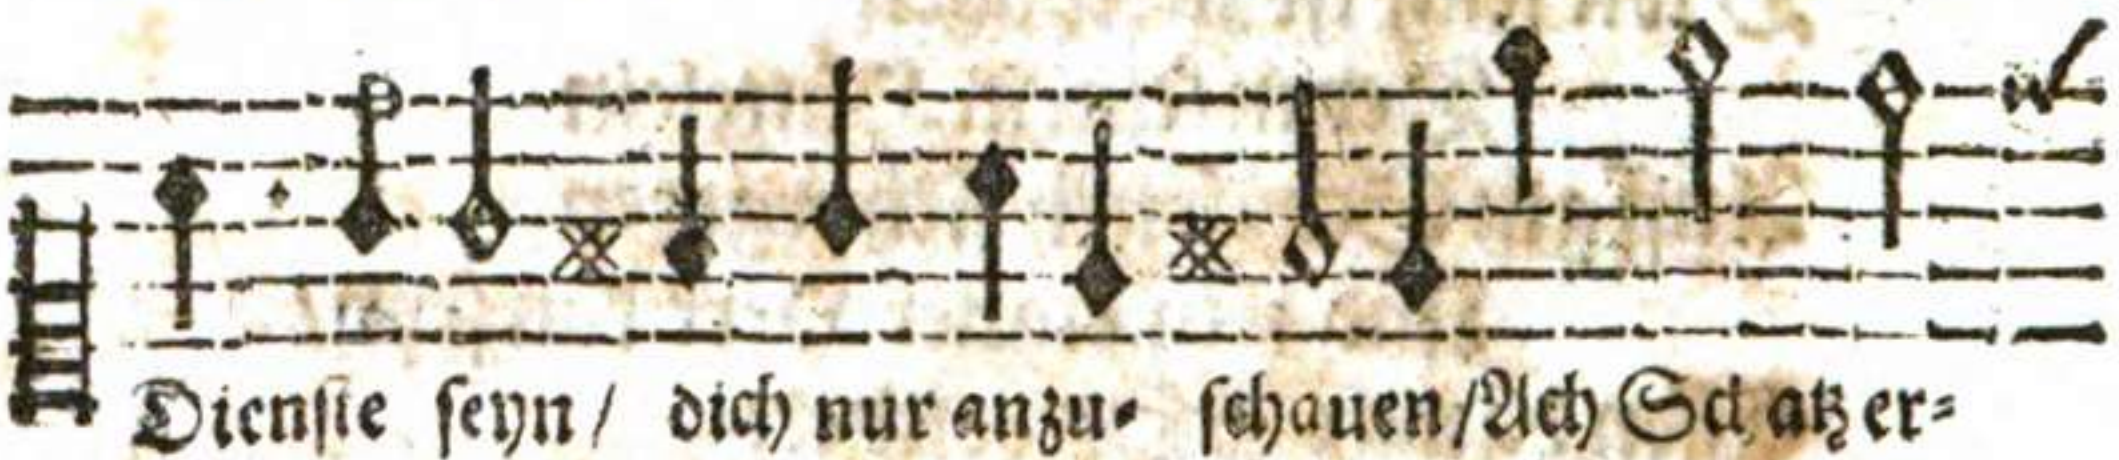 Dienſte ſeyn / dich nur anzu⸗ ſchauen / Ach Schatz er⸗